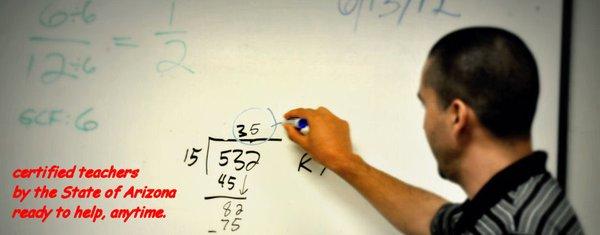 6÷6
12÷6
=
1
2
6/13/12
GCF: 6
35
15
532
45
82
-75
R
certified teachers
by the State of Arizona
ready to help, anytime.